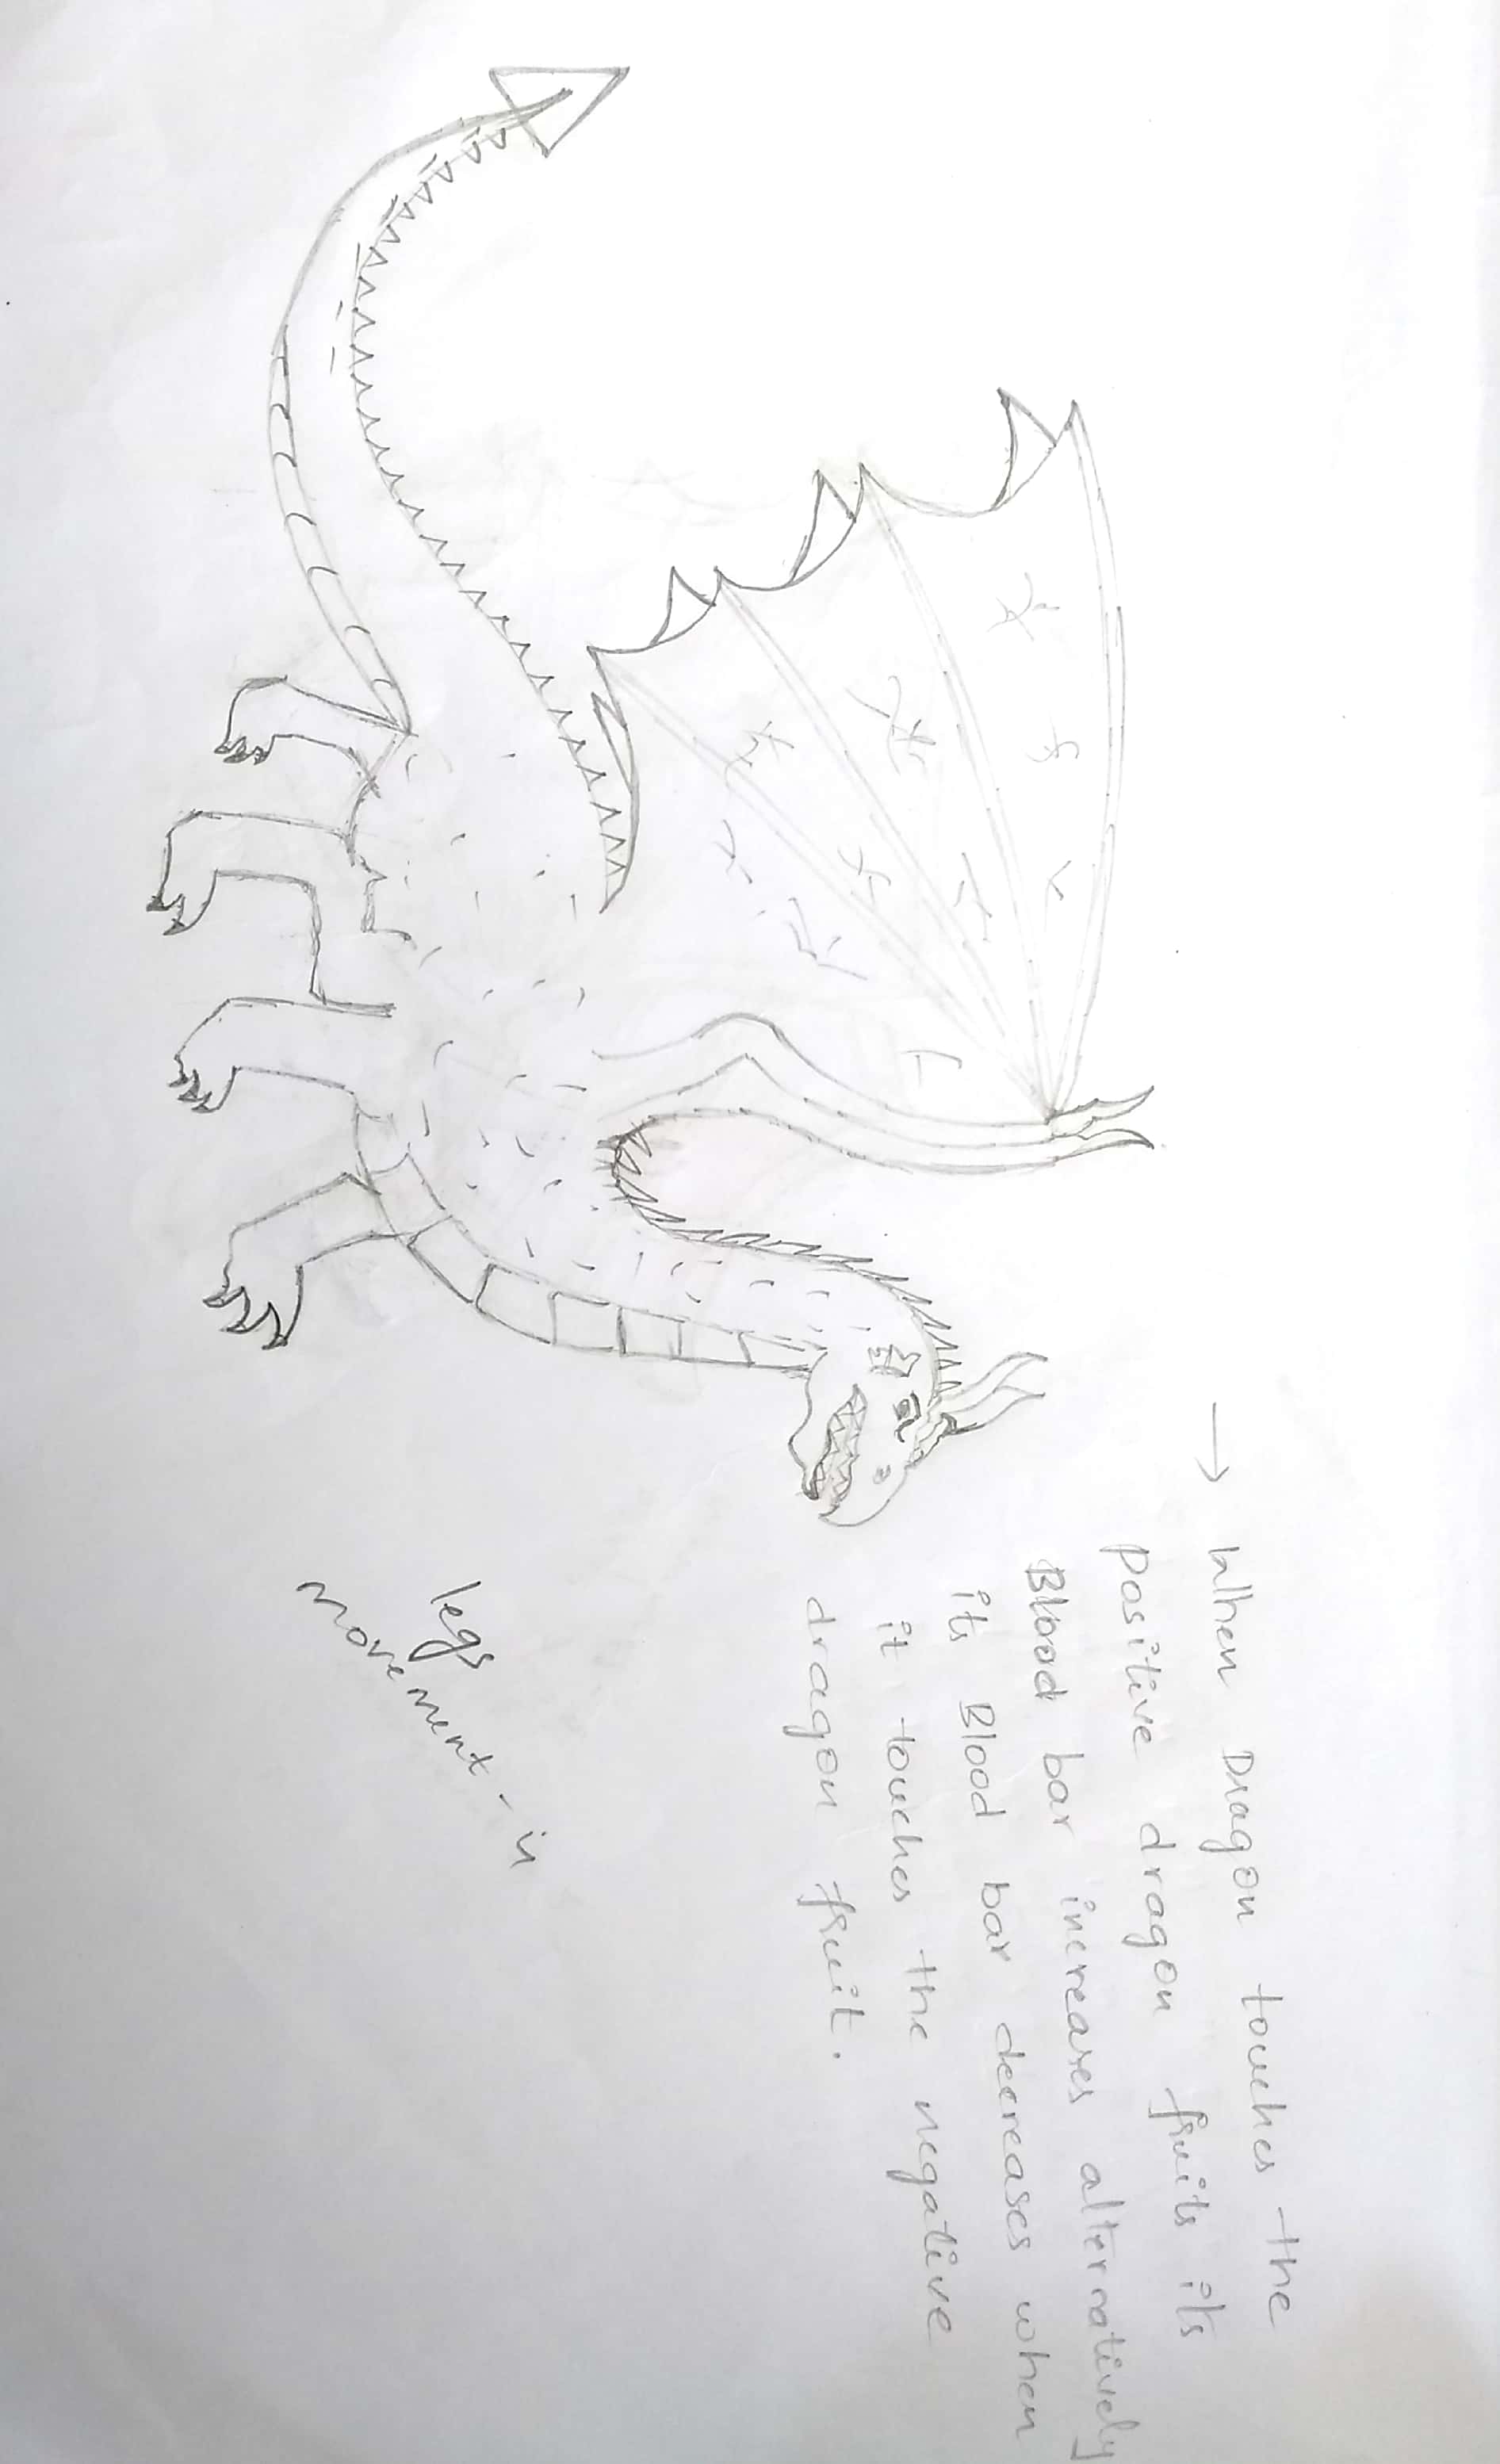 → When Dragon touches the
positive dragon fruits its
Blood bar increases alternatively
its Blood bar decreases when
it touches the negative
dragon fruit.
legs
movement - is